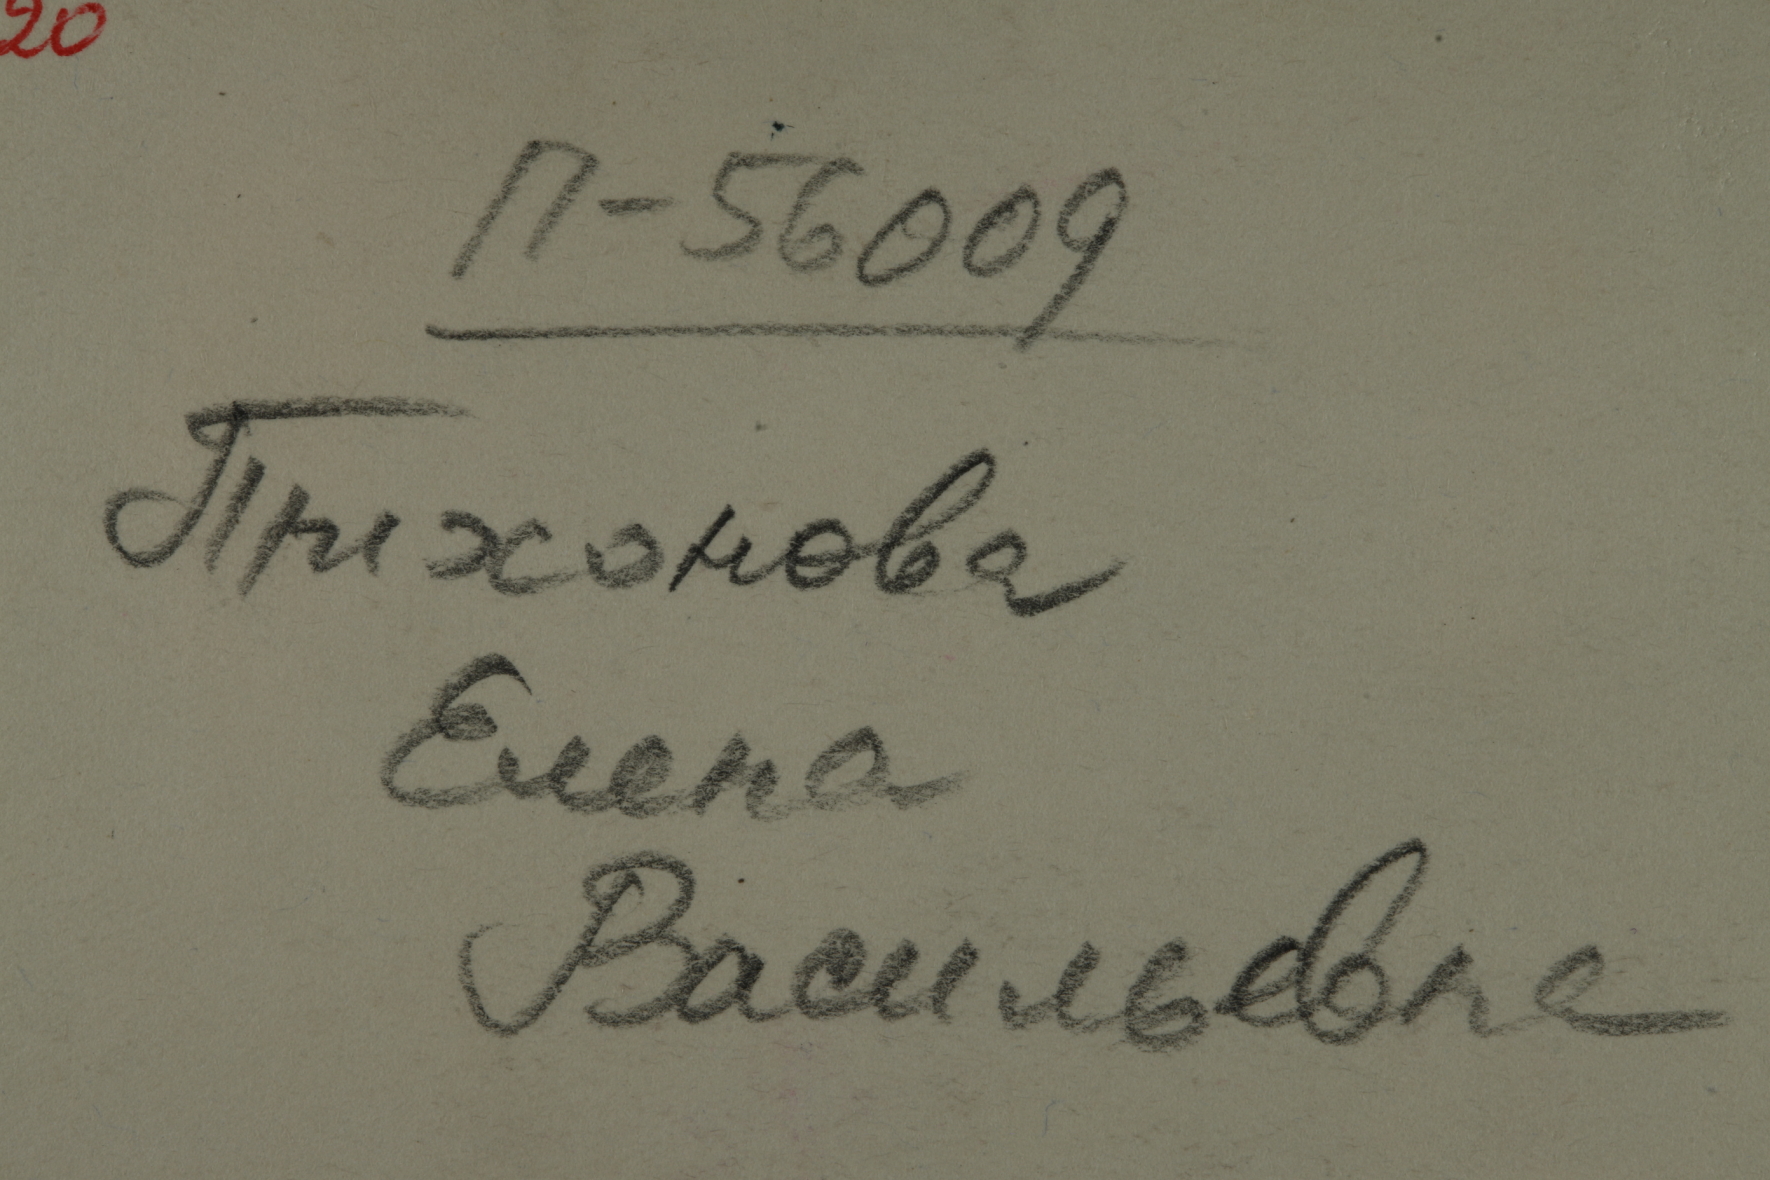 20
П-56009
Тихонова
Елена
Васильевна